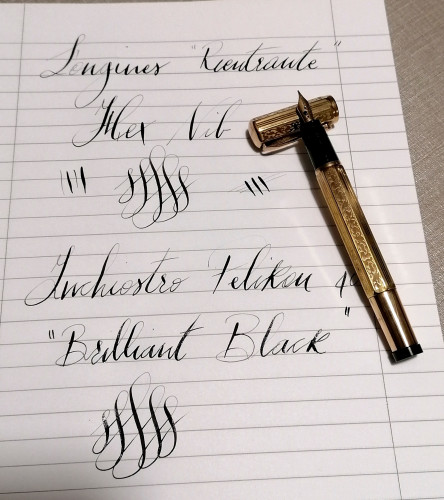 Longines "Rientrante"
Flex Nib
Inchiostro Pelikan 4
"Brilliant Black"